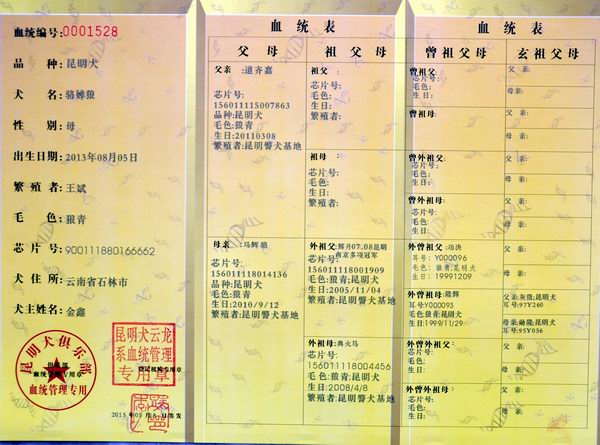 血统编号:0001528
品 种: 昆明犬
犬 名: 骆婵狼
性 别: 母
出生日期: 2013年08月05日
繁 殖 者: 王斌
毛 色: 狼青
芯 片 号: 900111880166662
犬 住 所: 云南省石林市
犬主姓名: 金鑫
昆明犬俱乐部
血统管理专用
昆明犬云龙
系血统管理
专用章
登记机构专用章
血统表
父 母
祖父母
父亲:道齐嘉
芯片号:
156011115007863
品种:昆明犬
毛色:狼青
生日:20110308
繁殖者:昆明警犬基地
母亲:马辉
芯片号:
156011118014136
品种:昆明犬
毛色:狼青
生日:2010/9/12
繁殖者:昆明警犬基地
祖父:
芯片号:
毛色:
生日:
繁殖者:
祖母:
芯片号:
毛色:
生日:
繁殖者:
外祖父:辉丹07.08昆明
南京多项冠军
芯片号:
156011118001909
毛色:狼青;昆明犬
生日:2005/11/04
繁殖者:昆明警犬基地
外祖母:典火马
芯片号:
156011118004456
毛色:狼青;昆明犬
生日:2008/4/8
繁殖者:昆明警犬基地
血统表
曾祖父母
玄祖父母
曾祖父:
芯片号:
毛色:
生日:
曾祖母:
曾外祖父:
芯片号:
毛色:
生日:
曾外祖母:
芯片号:
毛色:
生日:
外曾祖父:功决
耳号:Y000096
毛色:狼青;昆明犬
生日:19991209
外曾祖母:隆辉
耳号Y000093
毛色:狼青;昆明犬
生日:1999/11/29
外曾外祖父:
芯片号:
毛色:
生日:
外曾外祖母:
芯片号:
毛色:
生日:
父亲:
母亲:
父亲:
母亲:
父亲:
母亲:
父亲:
母亲:
父亲:
母亲:
父亲:灰狼;昆明犬
耳号:97Y260
母亲:融隆;昆明犬
耳号:95Y056
父亲:
母亲:
父亲:
母亲: